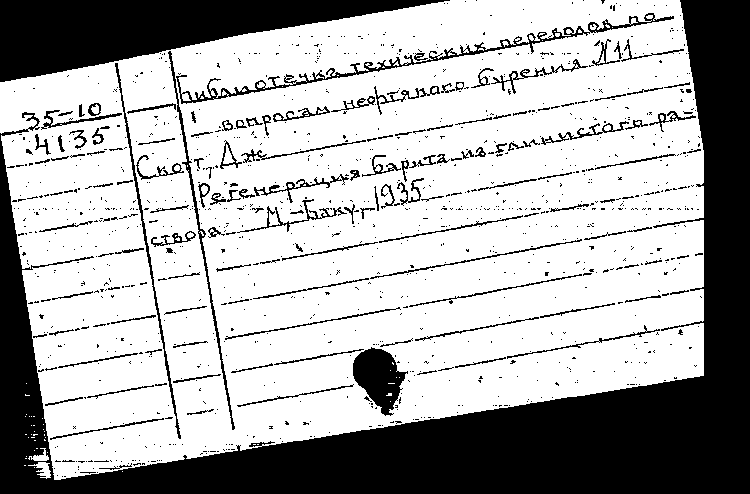 Библиотечка технических переводов по
вопросам нефтяного бурения №11
35-10
4135
Скотт, Дж
Регенерация барита из глинистого ра=
створа М,-Баку, 1935